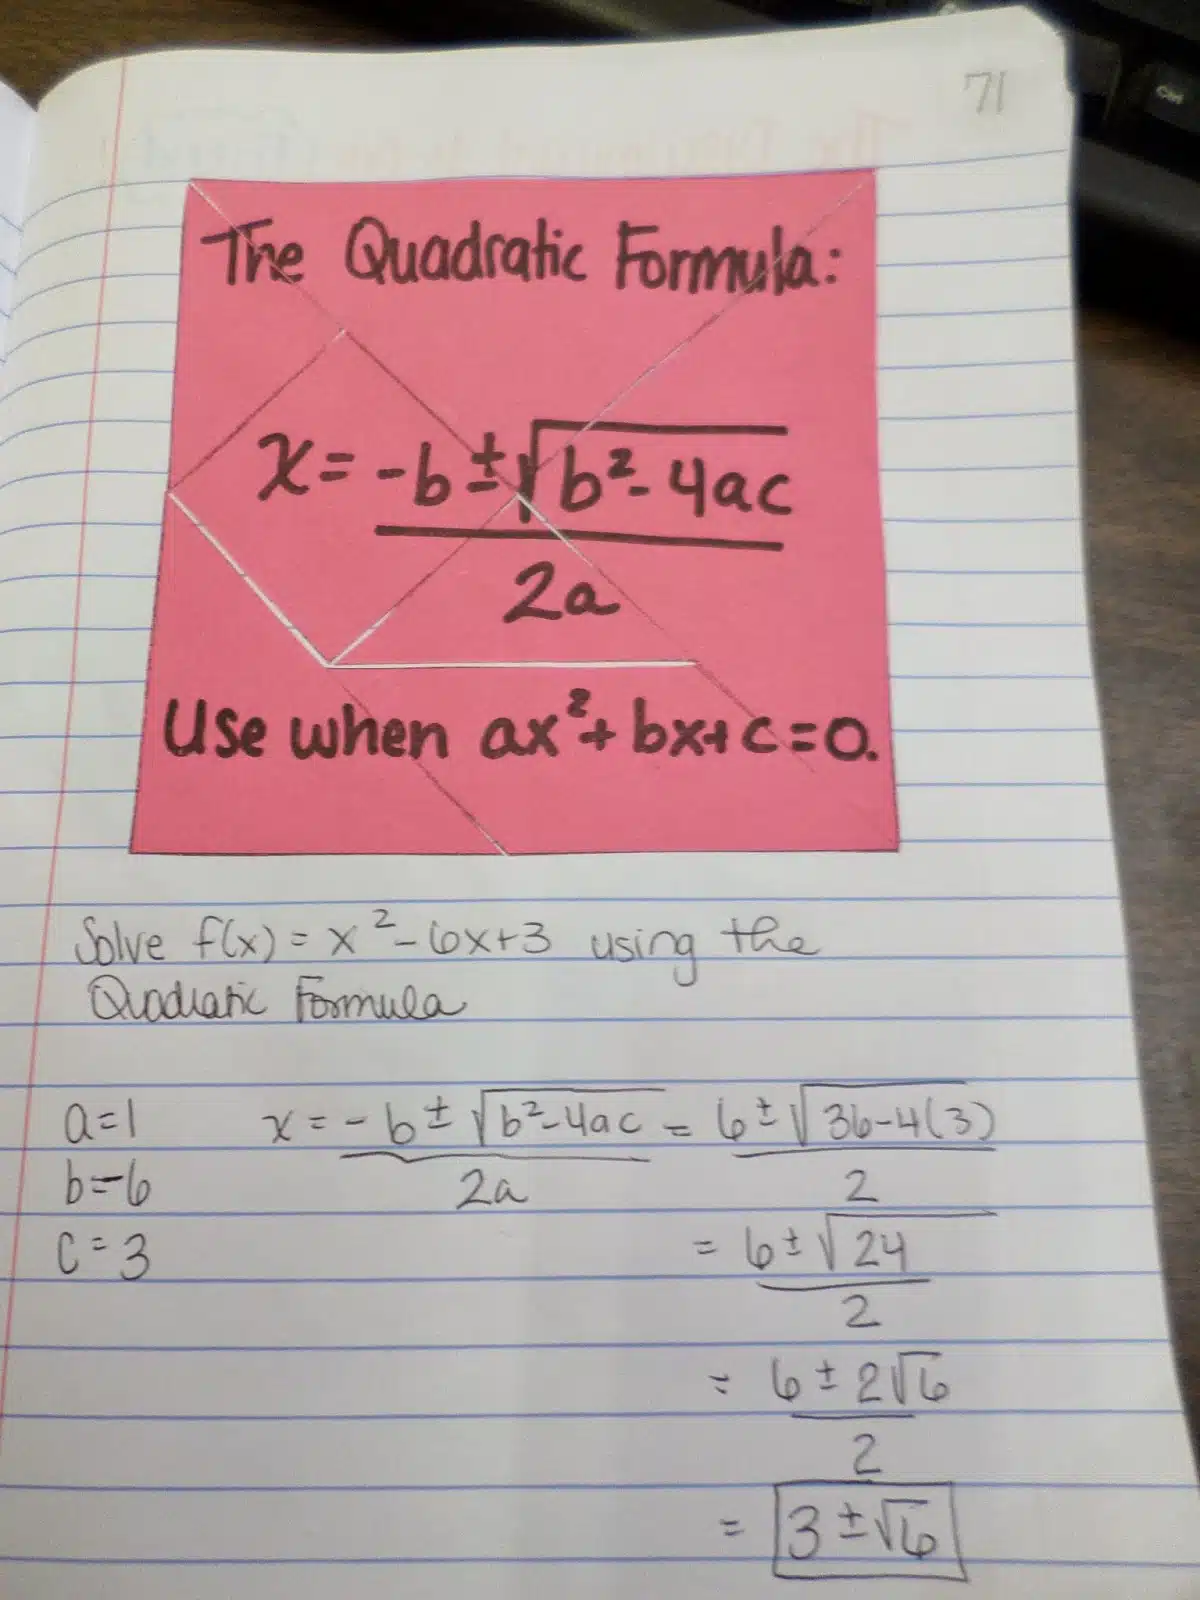 71
The Quadratic Formula:
x = -b ± √b² - 4ac
2a
Use when ax² + bx + c = 0.
Solve f(x) = x² - 6x + 3 using the
Quadratic Formula
a = 1 x = -b ± √b² - 4ac = 6 ± √36 - 4(3)
b = -6 2a 2
c = 3 = 6 ± √24
2
= 6 ± 2√6
2
= 3 ± √6